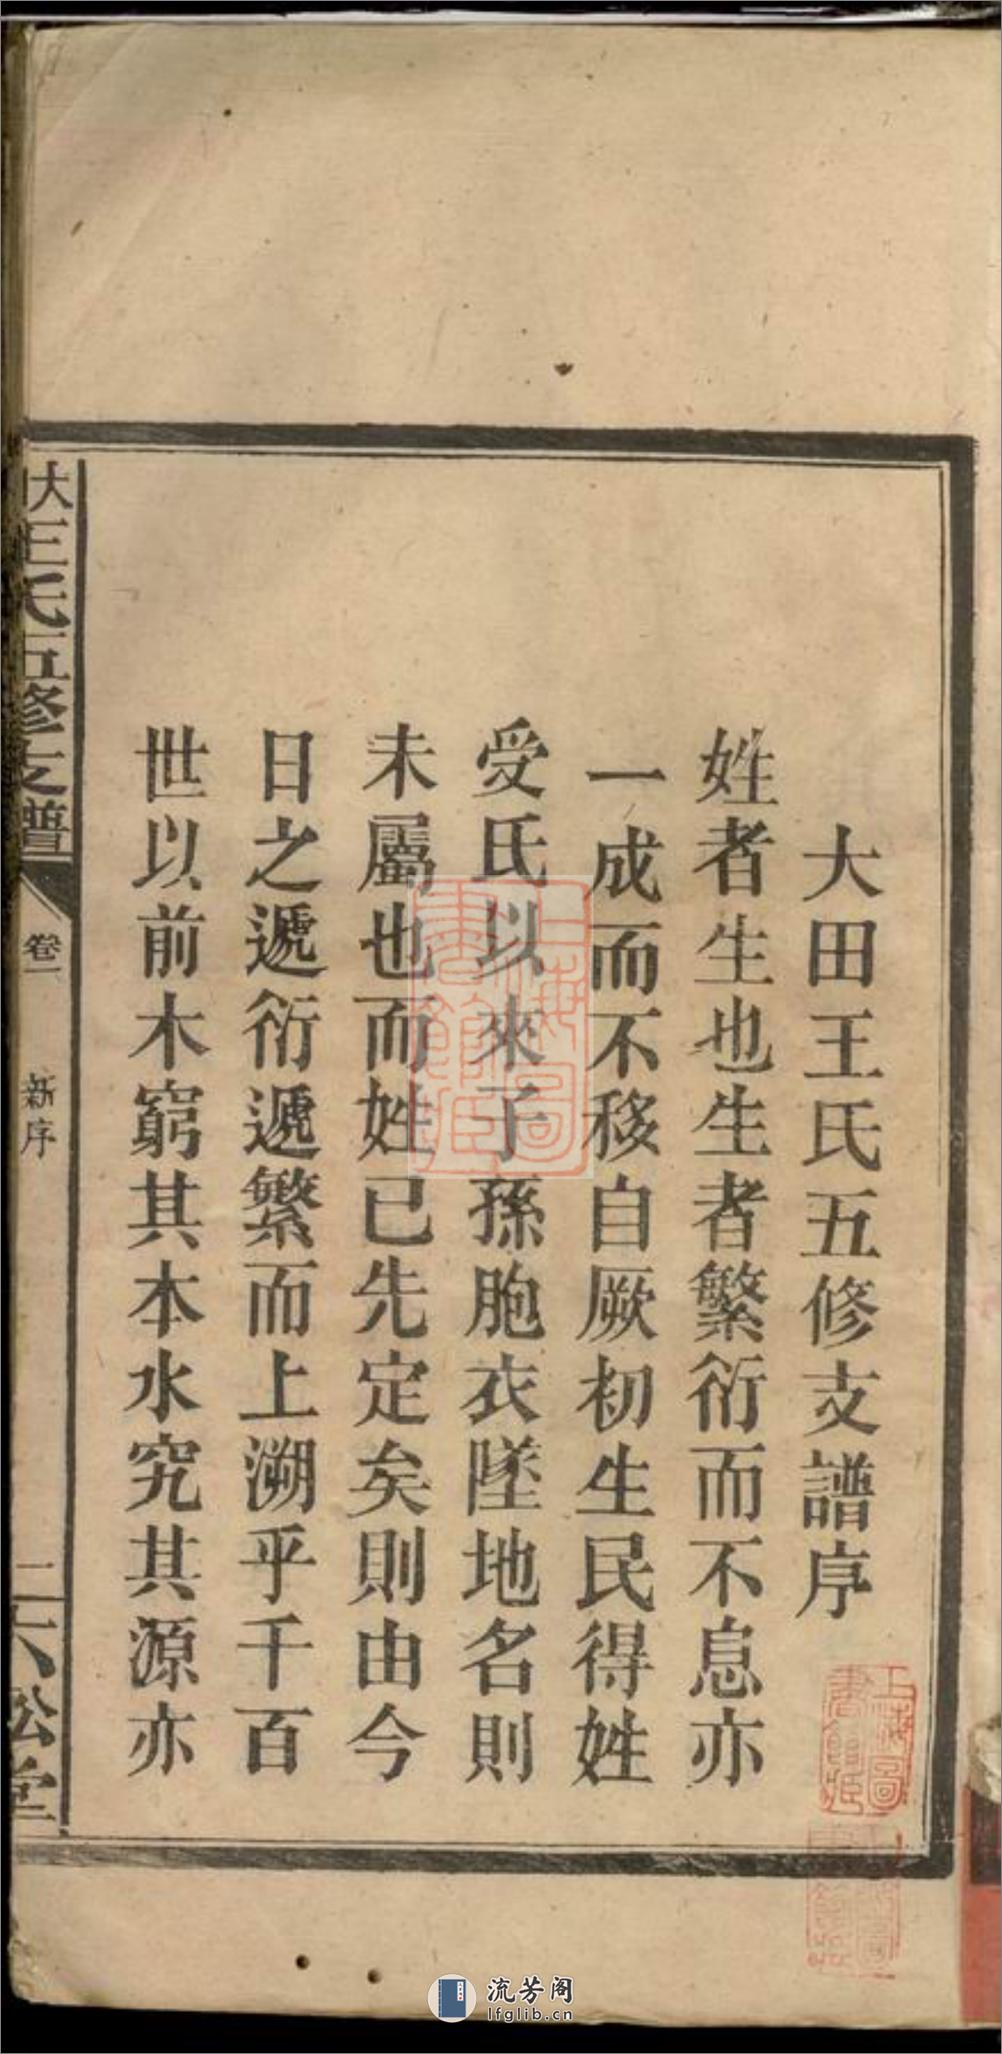 大田王氏五修支譜序
姓者生也生者繁衍而不息亦
一成而不移自厥初生民得姓
受氏以來子孫胞衣墜地名則
未屬也而姓已先定矣則由今
日之遞衍遞繁而上溯乎千百
世以前木窮其本水究其源亦
大王氏五修支譜
卷一
新序
二
六松堂
上海圖書館藏
上海圖書館藏
上海圖書館藏
流芳阁
lfglib.cn